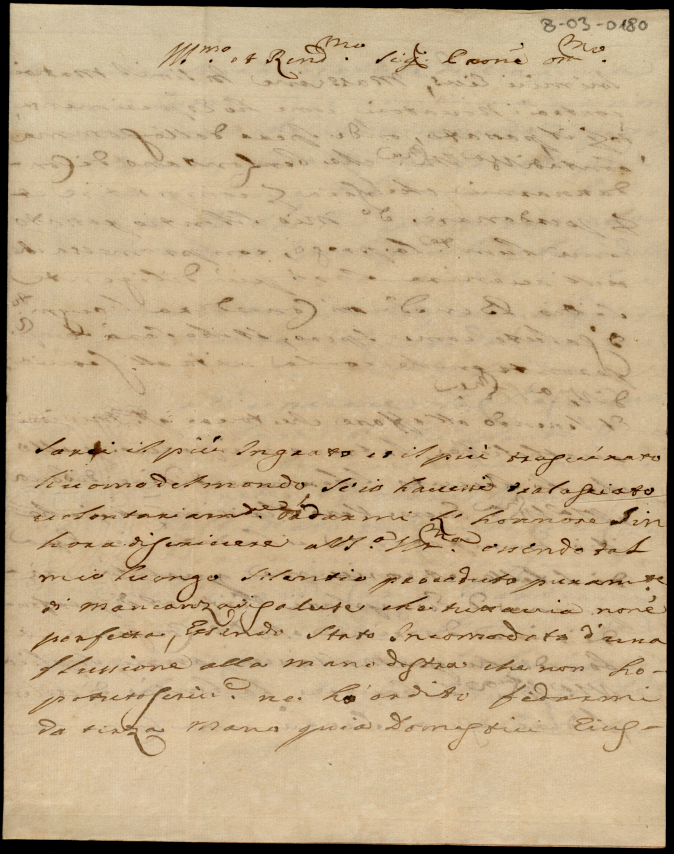 8-03-0180
Ill.mo et Rev.mo Sig.r e Prone
Sarei il più Ingrato et il più trascurato
huomo del mondo Se io havessi tralasciato
volontariam.te di darmi l' honnore Sin
hora di scrivere a V.S. Ill.ma essendo tal
mio luongo Silentio proceduto puram.te
di mancanza di salute che tuttavia non è
perfetta, Essendo Stato Incomodato d'una
flussione alla mano destra che non ho
potuto scriv.e ne ho ardito fidarmi
da terza mano quia Domestici Eius-